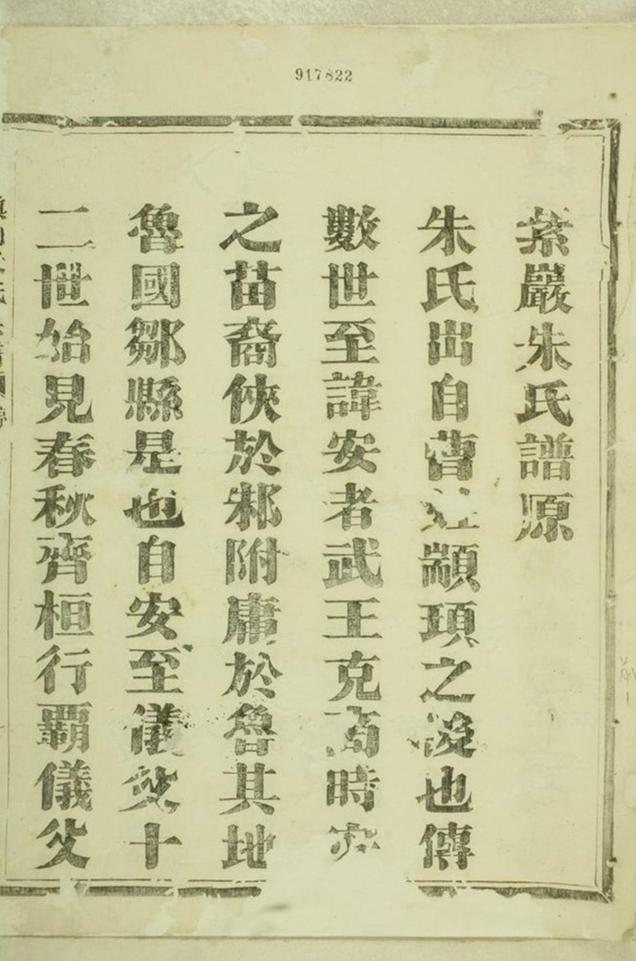 917822
紫巖朱氏譜源
朱氏出自曹姓顓頊之後也傳
數世至諱安者武王克商時安
之苗裔俠於邾附庸於魯其地
魯國鄒縣是也自安至儀父十
二世始見春秋齊桓行覇儀父